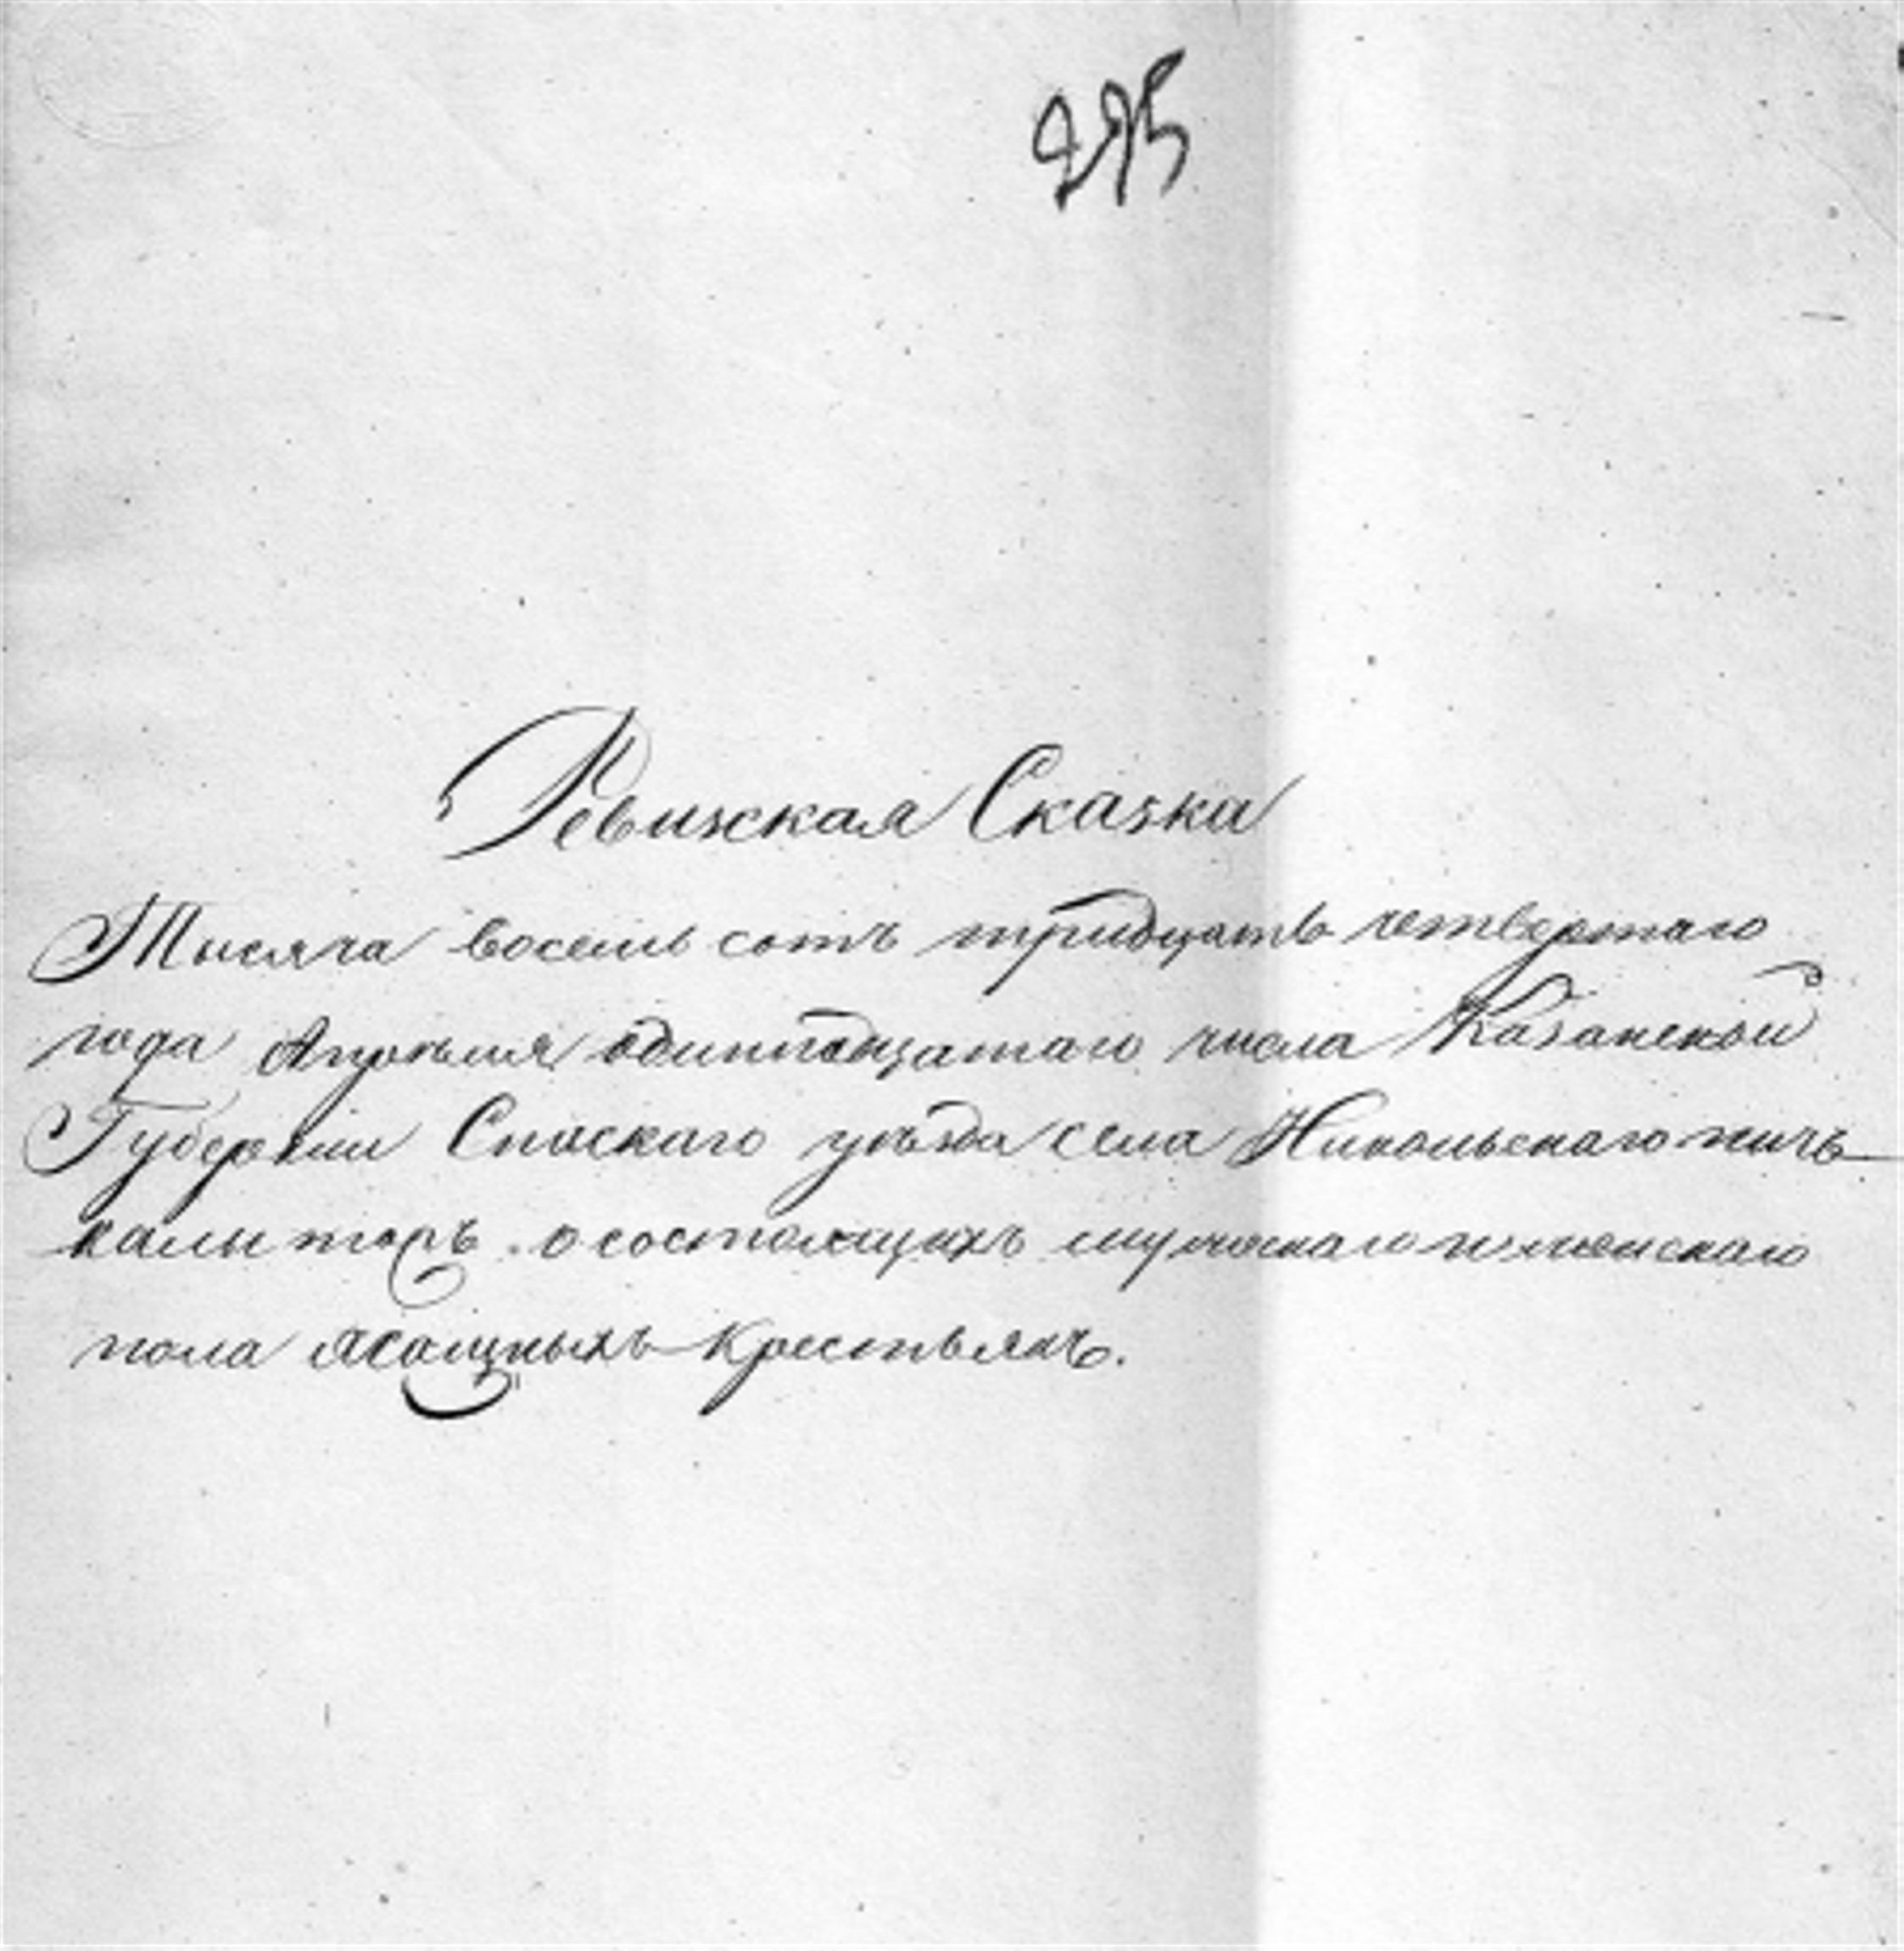 295
Ревижская Сказка
Тысяча восемь сотъ тридцать четвертаго
года Апрѣля одиннадцатаго числа Казанской
Губерніи Спаскаго уѣзда села Никольскаго
о состоящихъ мужескаго и женскаго
пола ясашныхъ крестьянъ.